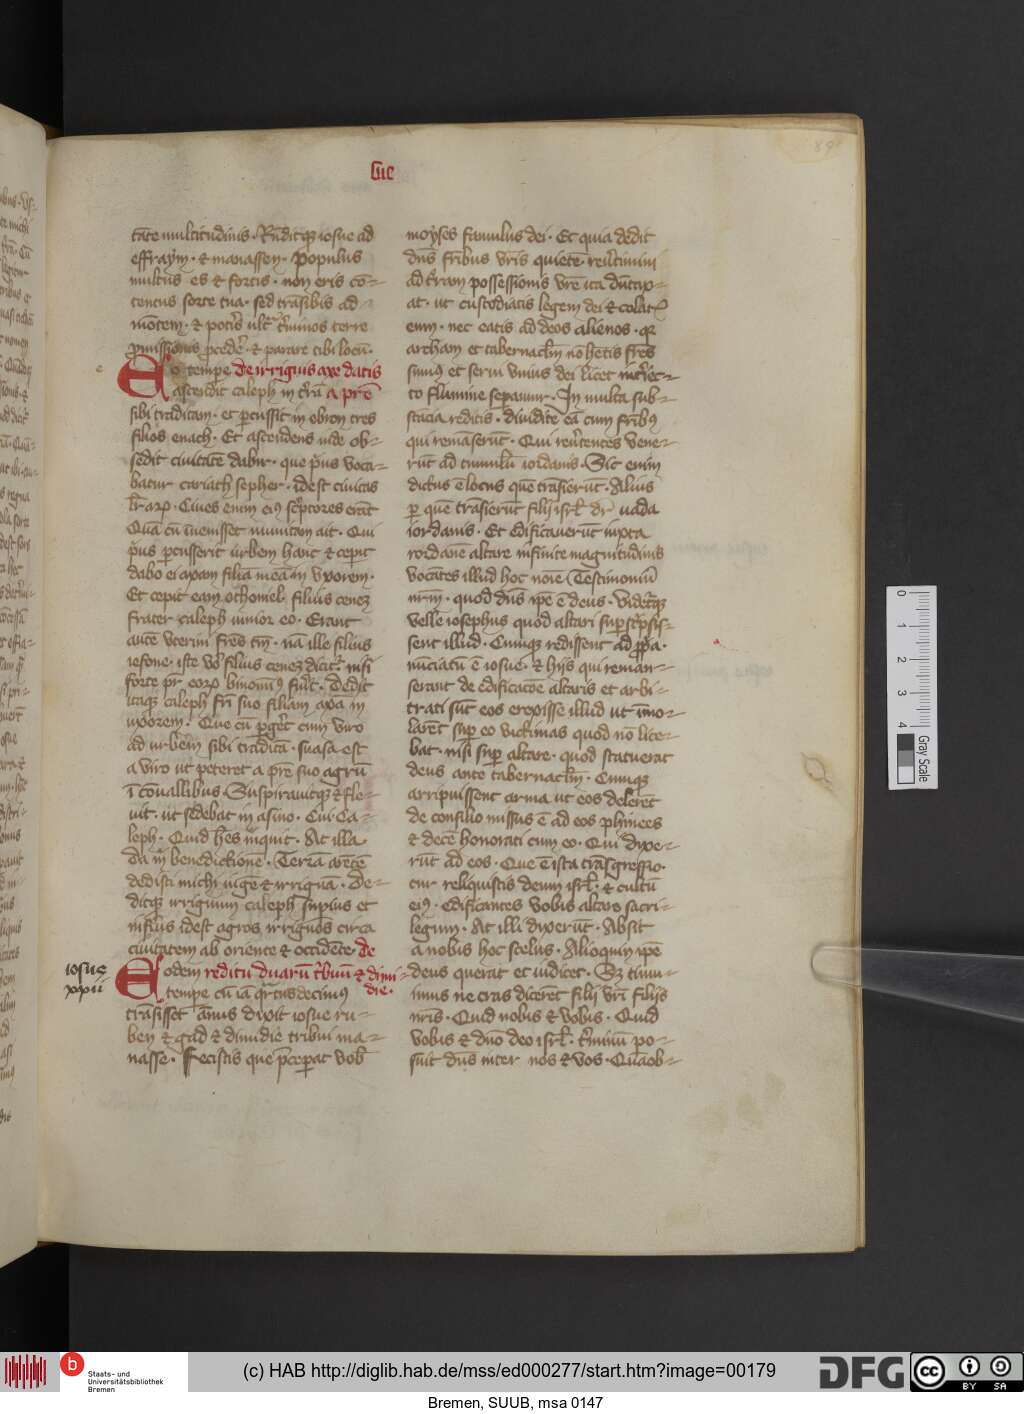 sue
89
tāte multitudinis · Rñditqꝫ iosue ad
effraym · ⁊ manassen · Populus
multus es ⁊ fortis · non eris cō=
tentus sorte tua · sed trāsibis ad
mōtem · ⁊ potīs ultᵃ tīminos terre
ꝓmissionis ꝓcedē ⁊ parare tibi locū ·
Eo tempe De irriguis axe datis
ascendit caleph in tīrā a prē
sibi traditam · et ꝑcussit in ebron tres
filios enach · Et ascendens inde ob=
sedit ciuitatē dabir · que pⁱus voca=
batur cariath sepher · idest ciuitas
lrāꝝ · Ciues enim eiꝰ scptores erāt
Quā cū īuenisset munitam ait · Qui
pⁱus ꝑcusserit urbem hanc ⁊ ceꝑit
dabo ei axam filiā meā in vxorem ·
Et cepit eam othoniel filius cenez
frater caleph iunior eo · Erant
autē vterini frēs · nā ille filius
iefone · iste vo filius cenez dicit nisi
forte pr eoꝝ binomiꝰ fuīt · Dedit
itaqꝫ caleph frī suo filiam axā in
uxorem · Que cū ꝑgēt cum viro
ad urbem sibi traditā · suasa est
a viro ut peteret a prē suo agrū
ī cōuallibus · Suspirauitqꝫ ⁊ fle=
uit · ut sedebat in asino · Cui Ca=
leph · Quid hēs inquit · At illa
Da m benedictionē · Terrā arētē
dedisti michi iūge ⁊ irriguā · De=
ditqꝫ irriguum caleph suꝑius et
inferius idest agros irriguos circa
ciuitatem ab oriente ⁊ occidēte · De
iosue
xxii
Eodem reditu duarū tībuū ⁊ dimi=
die ·
tempe cū iā qᵃrtusdecimꝰ
trāsisset annus dixit iosue ru=
ben ⁊ gad ⁊ dimidie tribui ma=
nasse · Fecistis que pcepat vob
moyses famulus dei · Et quia dedit
dns fribus vris quietē · reūtimini
ad tīram possessionis vrē ita dūtax=
at · ut custodiatis legem dei ⁊ colatꝭ
eum · nec eatis ad deos alienos · qꝛ
archam et tabernaclm nō hētis frēs
sumꝰ et serui vnius dei licet intīiec=
to flumine separamur · In multa sub=
stācia reditis · diuidite eā cum fribꝰ
qui remāserūt · Qui reūtentes vene=
rūt ad tumulū iordanis · Sic enim
dictus ē locus quē trāsierūt · Alius
ꝑ quē trāsierūt filij isrl dr vada
iordanis · Et edificauerūt iuxta
iordanē altare infinite magnitudinis
vocātes illud hoc noīe Testimoniū
nrm · quod dns ipē ē deus · Videtqꝫ
velle iosephus quod altari suꝑscpsis=
sent illud · Cumqꝫ redissent ad ꝓpa ·
nūciatū ē iosue · ⁊ hijs qui reman=
serant de edificacōe altaris et arbi=
trati sūt eos erexisse illud ut īmo=
larēt suꝑ eo victimas quod nō lice=
bat · nisi suꝑ altare · quod statuerat
deus ante tabernaclm · Cumqꝫ
arripuissent arma ut eos delerēt
de consilio missus ē ad eos phinees
⁊ decē honorati cum eo · Qui dixe=
rūt ad eos · Que ē ista trāsgressio ·
cur reliquistis deum isrl · ⁊ cultū
eiꝰ · edificantes vobis altare sacri=
legum · At illi dixerūt · Absit
a nobis hoc scelus · Alioquin ipē
deus querat et iudicet · Sꝫ timu=
imus ne cras dicerēt filij vrī filijs
nrīs · Quid nobis ⁊ vobis · Quid
vobis ⁊ dno deo isrl · tīminū po=
suit dns inter nos ⁊ vos · Quāob=
0 1 2 3 4
Gray Scale
b Staats- und
Universitätsbibliothek
Bremen
(c) HAB http://diglib.hab.de/mss/ed000277/start.htm?image=00179
DFG
cc BY SA
Bremen, SUUB, msa 0147